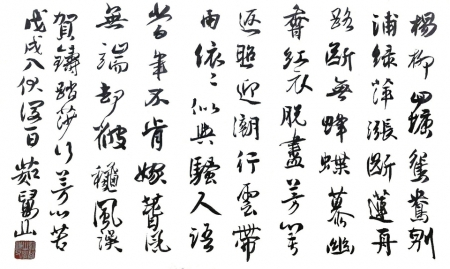 楊柳回塘鴛鴦別
浦綠萍漲斷蓮舟
路斷無蜂蝶慕幽
香紅衣脫盡芳心苦
返照迎潮行雲帶
雨依〻似與騷人語
當年不肯嫁春風
無端卻被龝風誤
賀鑄踏莎行芳心苦
戊戌入伏後